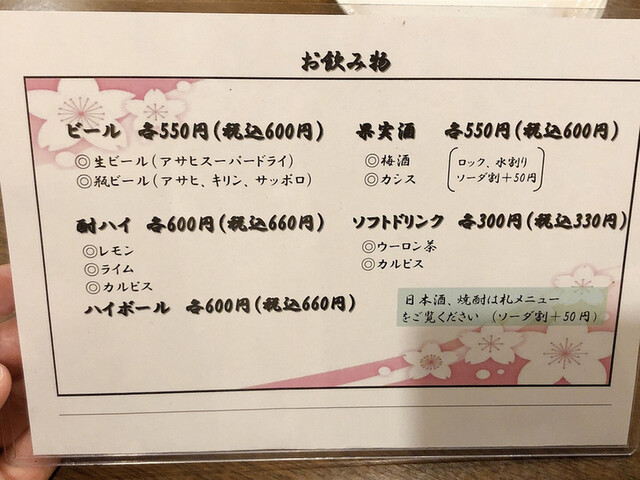 お飲み物
ビール 各550円(税込600円)
◎生ビール(アサヒスーパードライ)
◎瓶ビール(アサヒ、キリン、サッポロ)
酎ハイ 各600円(税込660円)
◎レモン
◎ライム
◎カルピス
ハイボール 各600円(税込660円)
果実酒 各550円(税込600円)
◎梅酒
◎カシス
ロック、水割り
ソーダ割+50円
ソフトドリンク 各300円(税込330円)
◎ウーロン茶
◎カルピス
日本酒、焼酎は札メニュー
をご覧ください (ソーダ割+50円)